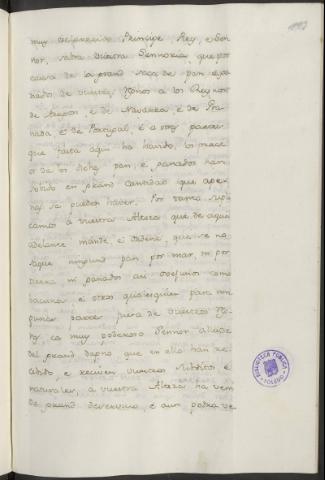 muy esclarecido Principe, Rey, e Sen-
nor, sabra Vuestra Sennoria, que por
causa de la grand saca de pan e ga-
nados de vuestros Regnos a los Regnos
de Aragon, e de Navarra, e de Gra-
nada, e de Portogal, e a otras partes
que fasta aqui ha havido, los precios
de los dichos pan, e ganados han
sobido en grand cantidad que ape-
nas se pueden haver. Por tanto supli-
camos a vuestra Alteza que de aqui
adelante mande, e ordene, que se no
saque ningund pan por mar, ni por
tierra ni ganados asi ovejunos como
vacunos e otros qualesquier para nin-
gunas partes fuera de vuestros Reg-
nos, ca muy poderoso Sennor allende
del grand dapno, que en ello han re-
cebido, e reciben vuestros subditos e
naturales, a vuestra Alteza ha ven
de grand deservicio, e aun podra ve
BIBLIOTECA PUBLICA
TOLEDO